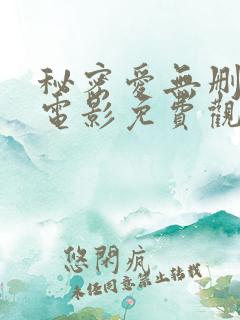 秘密愛無刪
電影免費觀
悠閑疯
未经同意禁止转载